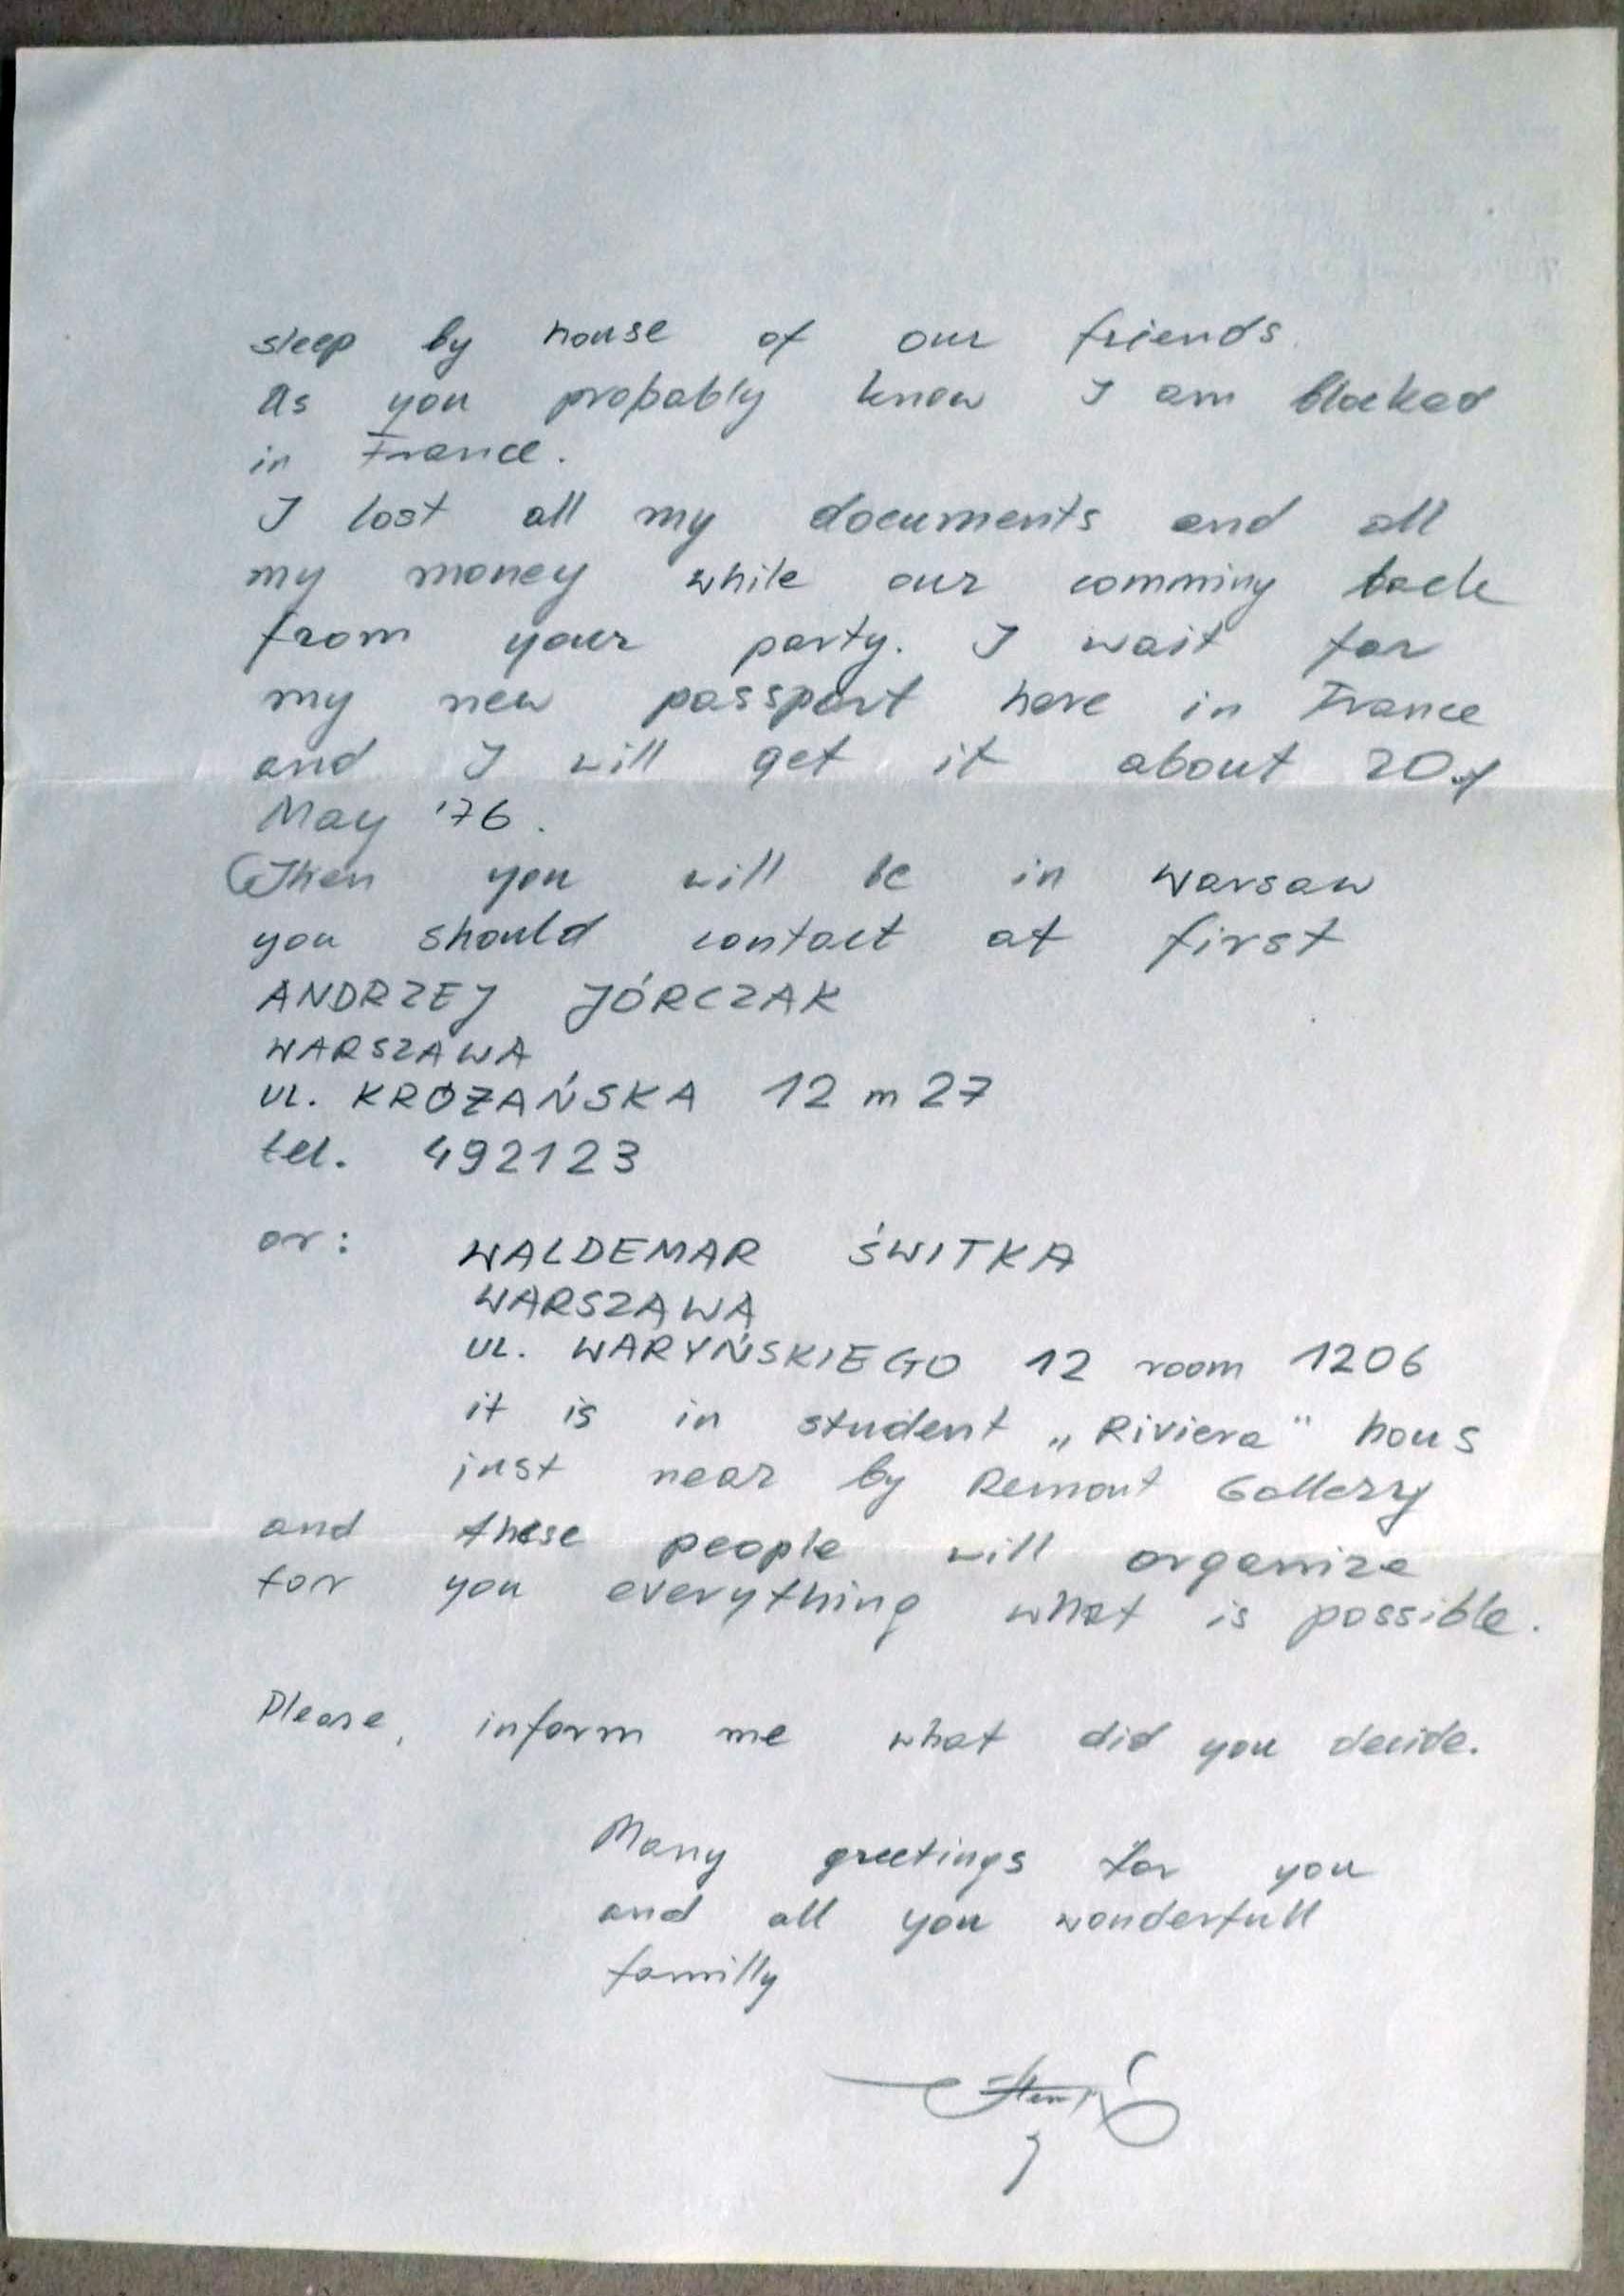 sleep by house of our friends.
As you probably know I am blocked
in France.
I lost all my documents and all
my money while our comming back
from your party. I wait for
my new passport here in France
and I will get it about 20
May '76.
When you will be in Warsaw
you should contact at first
ANDRZEJ JÓRCZAK
WARSZAWA
UL. KROŻAŃSKA 12 m 27
tel. 492123
or: WALDEMAR ŚWITKA
WARSZAWA
UL. WARYŃSKIEGO 12 room 1206
it is in student „Riviera" hous
just near by Remont Gallery
and these people will organize
for you everything what is possible.
Please, inform me what did you decide.
Many greetings for you
and all you wonderfull
familly